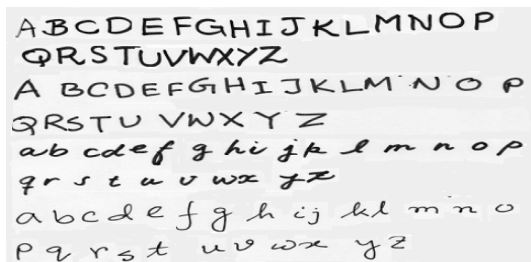 A B C D E F G H I J K L M N O P
Q R S T U V W X Y Z
A B C D E F G H I J K L M N O P
Q R S T U V W X Y Z
a b c d e f g h i j k l m n o p
q r s t u v w x y z
a b c d e f g h i j k l m n o
p q r s t u v w x y z